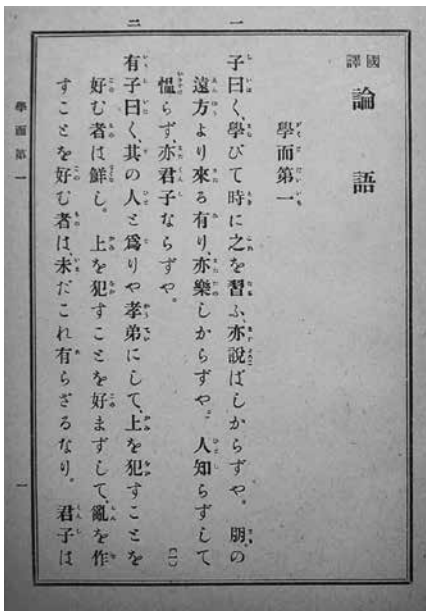 國譯 論語
學而第一
一
子曰く、學びて時に之を習ふ、亦說ばしからずや。朋の
遠方より來る有り、亦樂しからずや。人知らずして
慍らず、亦君子ならずや。
二
有子曰く、其の人と爲りや孝弟にして、上を犯すことを
好む者は鮮し。上を犯すことを好まずして、亂を作
すことを好む者は、未だこれ有らざるなり。君子は
學而第一
一